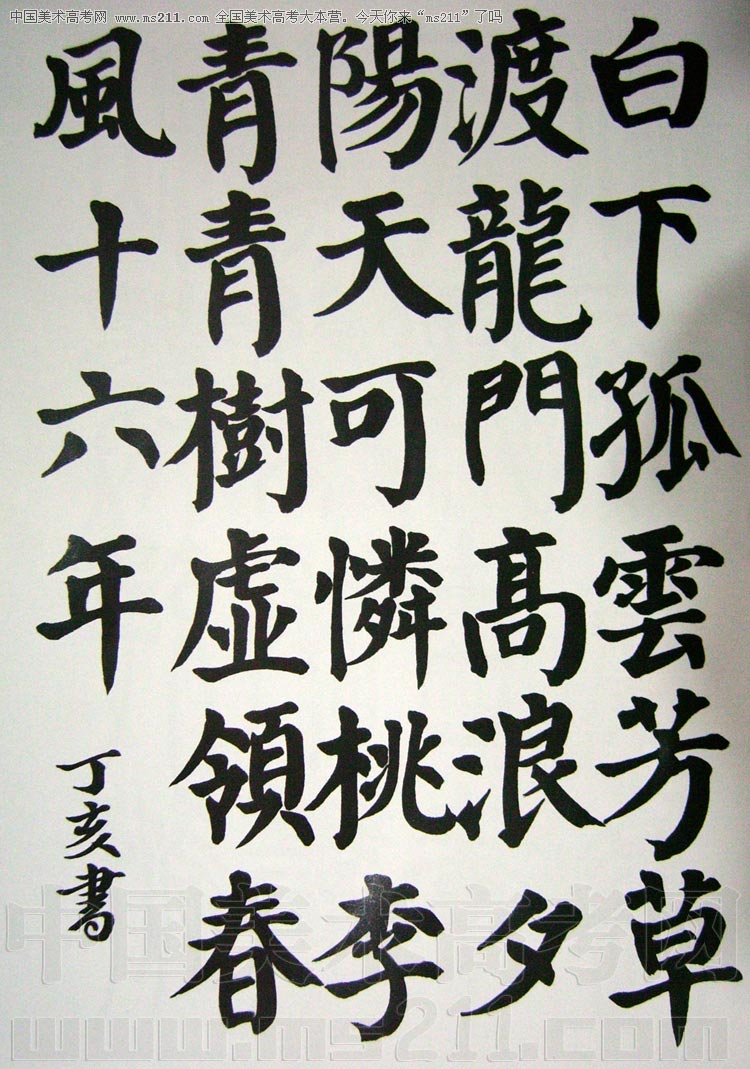 中国美术高考网 www.ms211.com 全国美术高考大本营。今天你来“ms211”了吗
白下孤雲芳草
渡龍門高浪夕
陽天可憐桃李
青青樹虛領春
風十六年
丁亥書
中国美术高考网
www.ms211.com